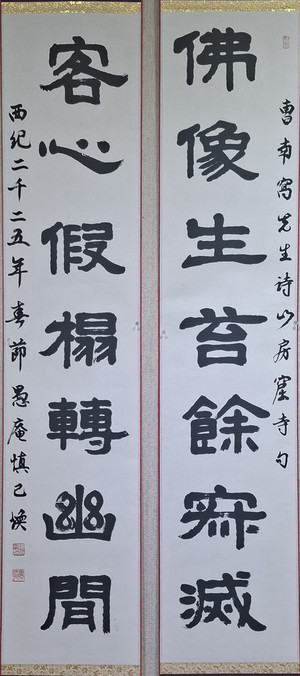 曹南窩先生詩山房窟寺句
佛像生苔餘寂滅
客心假榻轉幽間
西紀二千二五年春節愚庵慎己煥